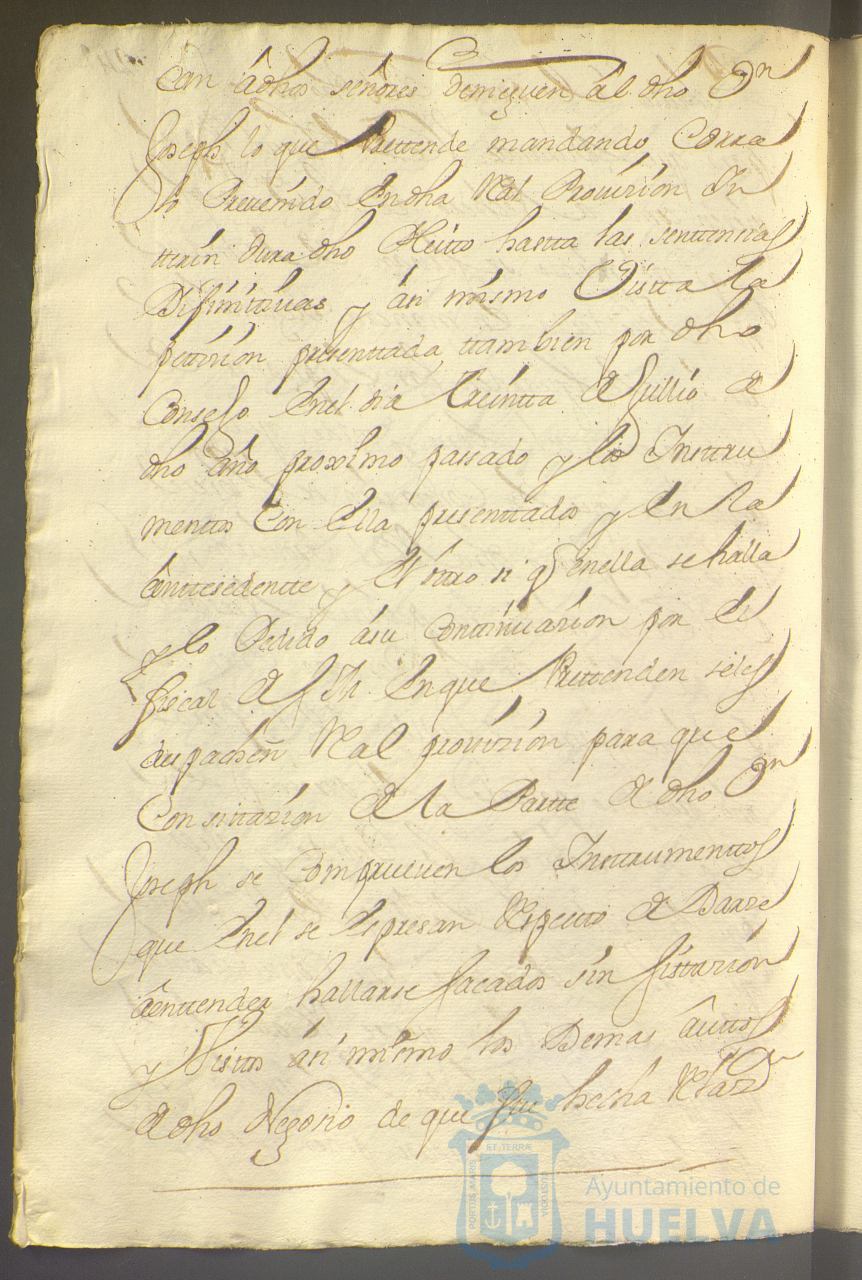 can â dhos señores denieguen âl dho Dn
Joseph lo que Prettende mandando Corra
lo Prevenido En dha Rál Provizion In
tterin dura dho Pleitto hastta las senttensias
Difinittivas y ási mismo Vistta la
pettizion presenttada ttambien por dho
Consejo Enel dia treintta de Jullio de
dho âño proximo passado y los Insttru
menttos Con Ella presenttados y En la
ânttesedentte y El ottro si q Enella se halla
y lo Pedido ásu Continuazion por El
fiscal de S. M. En que Prettenden seles
despachen Rál provizion para que
Con sittazion de la Partte de dho Dn
Joseph se Comprueven los Insttrumenttos
que Enel se Espresan Respectto de Darze
âenttender hallarse sacados sin sittazion
y Visttos ási mismo los Demas âuttos
de dho Negozio de que fue hecha Relazon
ET TERRÆ
PORTUS MARIS
CUSTODIA
Ayuntamiento de
HUELVA